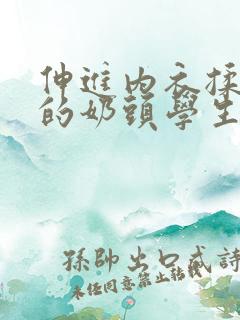 伸進內衣揉
的奶頭學生
孫帥出口成詩
未任同意禁止転載